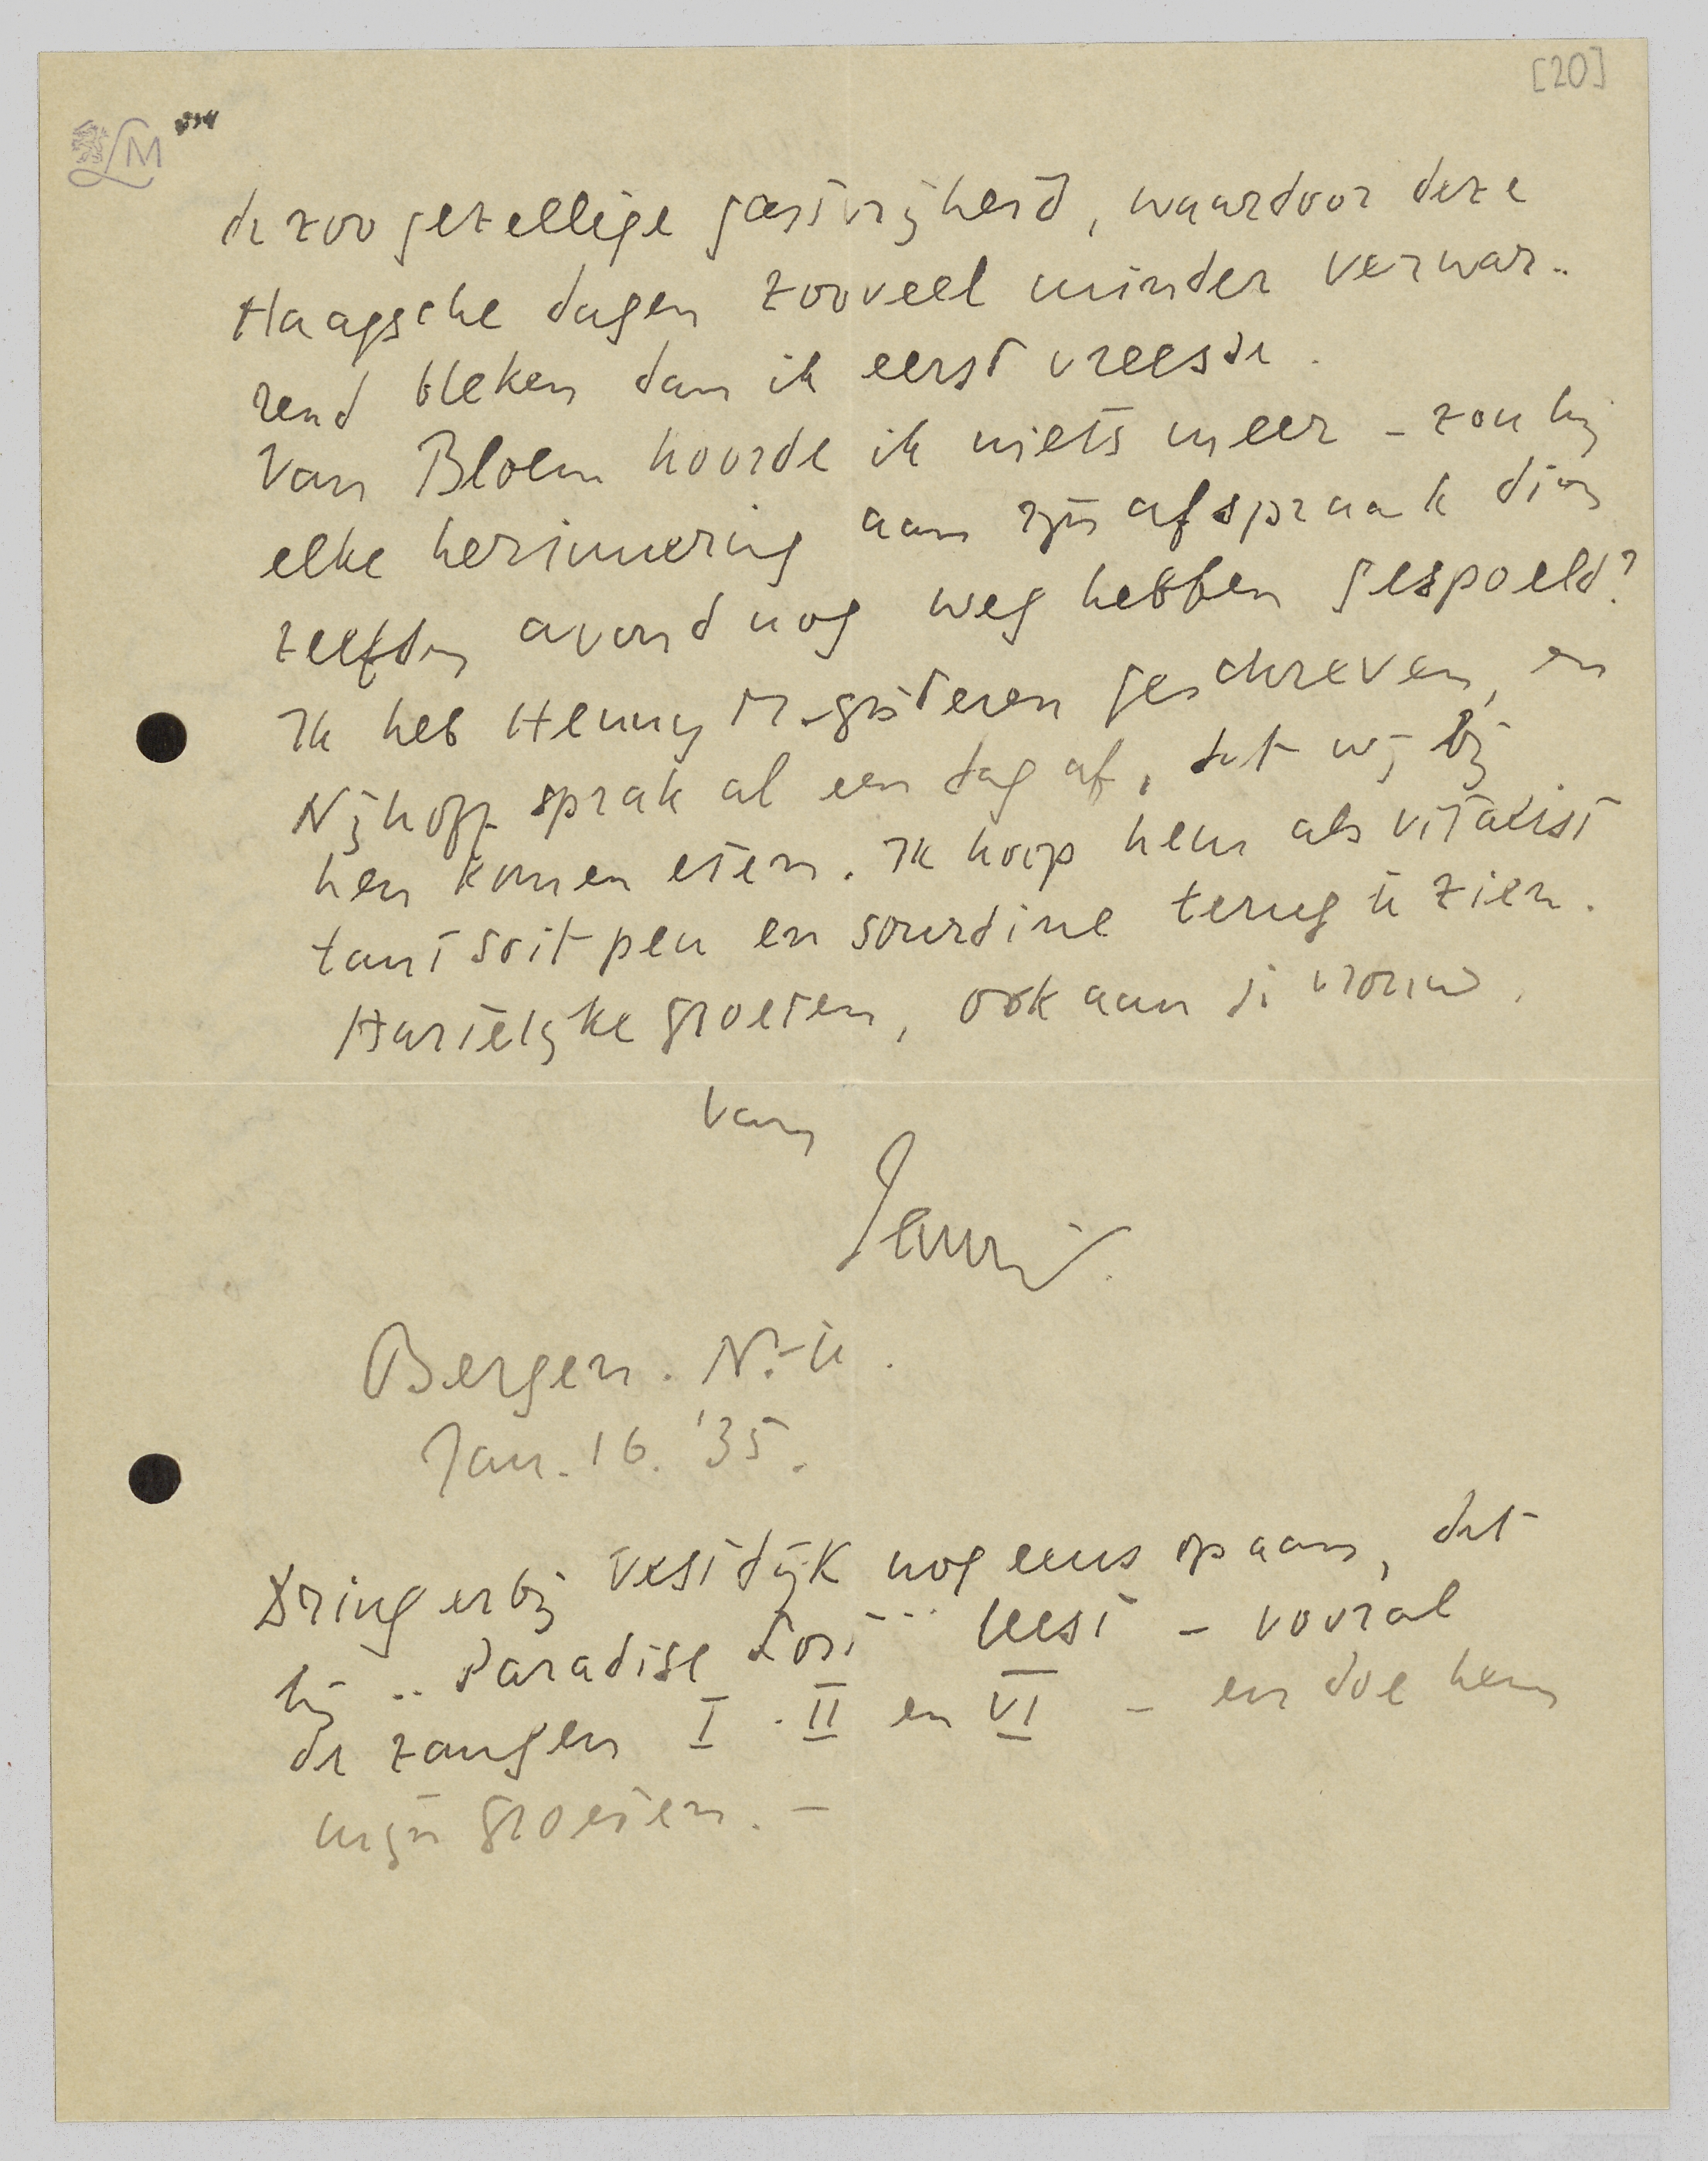 [20]
LM
de zoo gezellige gastvrijheid, waardoor deze
Haagsche dagen zooveel minder verwar..
rend bleken dan ik eerst vreesde.
Van Bloem hoorde ik niets meer - zou hij
elke herinnering aan zijn afspraak dien
zelfden avond nog weg hebben gespoeld?
Ik heb Henny M. gisteren geschreven, en
Nijhoff sprak al een dag af, dat wij bij
hen komen eten. Ik hoop hem als vitalist
tant soit peu en sourdine terug te zien.
Hartelijke groeten, ook aan je vrouw,
van
Bergen. N.-H.
Jan. 16. '35.
Dring er bij Vestdijk nog eens op aan, dat
hij „Paradise Lost" leest - vooral
de zangen I. II en VI - en doe hem
mijn groeten. -